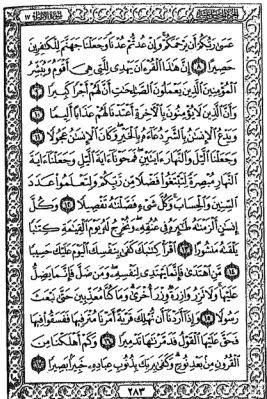 سورة الإسراء ١٧
عَسَىٰ رَبُّكُمْ أَن يَرْحَمَكُمْ وَإِنْ عُدتُّمْ عُدْنَا وَجَعَلْنَا جَهَنَّمَ لِلْكَافِرِينَ
حَصِيرًا ٨ إِنَّ هَٰذَا الْقُرْءَانَ يَهْدِي لِلَّتِي هِيَ أَقْوَمُ وَيُبَشِّرُ
الْمُؤْمِنِينَ الَّذِينَ يَعْمَلُونَ الصَّالِحَاتِ أَنَّ لَهُمْ أَجْرًا كَبِيرًا ٩
وَأَنَّ الَّذِينَ لَا يُؤْمِنُونَ بِالْآخِرَةِ أَعْتَدْنَا لَهُمْ عَذَابًا أَلِيمًا ١٠
وَيَدْعُ الْإِنسَانُ بِالشَّرِّ دُعَاءَهُ بِالْخَيْرِ وَكَانَ الْإِنسَانُ عَجُولًا ١١
وَجَعَلْنَا الَّيْلَ وَالنَّهَارَ ءَايَتَيْنِ فَمَحَوْنَا ءَايَةَ الَّيْلِ وَجَعَلْنَا ءَايَةَ
النَّهَارِ مُبْصِرَةً لِّتَبْتَغُوا فَضْلًا مِّن رَّبِّكُمْ وَلِتَعْلَمُوا عَدَدَ
السِّنِينَ وَالْحِسَابَ وَكُلَّ شَيْءٍ فَصَّلْنَاهُ تَفْصِيلًا ١٢ وَكُلَّ
إِنسَانٍ أَلْزَمْنَاهُ طَائِرَهُ فِي عُنُقِهِ وَنُخْرِجُ لَهُ يَوْمَ الْقِيَامَةِ كِتَابًا
يَلْقَاهُ مَنشُورًا ١٣ اقْرَأْ كِتَابَكَ كَفَىٰ بِنَفْسِكَ الْيَوْمَ عَلَيْكَ حَسِيبًا
١٤ مَّنِ اهْتَدَىٰ فَإِنَّمَا يَهْتَدِي لِنَفْسِهِ وَمَن ضَلَّ فَإِنَّمَا يَضِلُّ
عَلَيْهَا وَلَا تَزِرُ وَازِرَةٌ وِزْرَ أُخْرَىٰ وَمَا كُنَّا مُعَذِّبِينَ حَتَّىٰ نَبْعَثَ
رَسُولًا ١٥ وَإِذَا أَرَدْنَا أَن نُّهْلِكَ قَرْيَةً أَمَرْنَا مُتْرَفِيهَا فَفَسَقُوا فِيهَا
فَحَقَّ عَلَيْهَا الْقَوْلُ فَدَمَّرْنَاهَا تَدْمِيرًا ١٦ وَكَمْ أَهْلَكْنَا مِنَ
الْقُرُونِ مِن بَعْدِ نُوحٍ وَكَفَىٰ بِرَبِّكَ بِذُنُوبِ عِبَادِهِ خَبِيرًا بَصِيرًا ١٧
٢٨٣